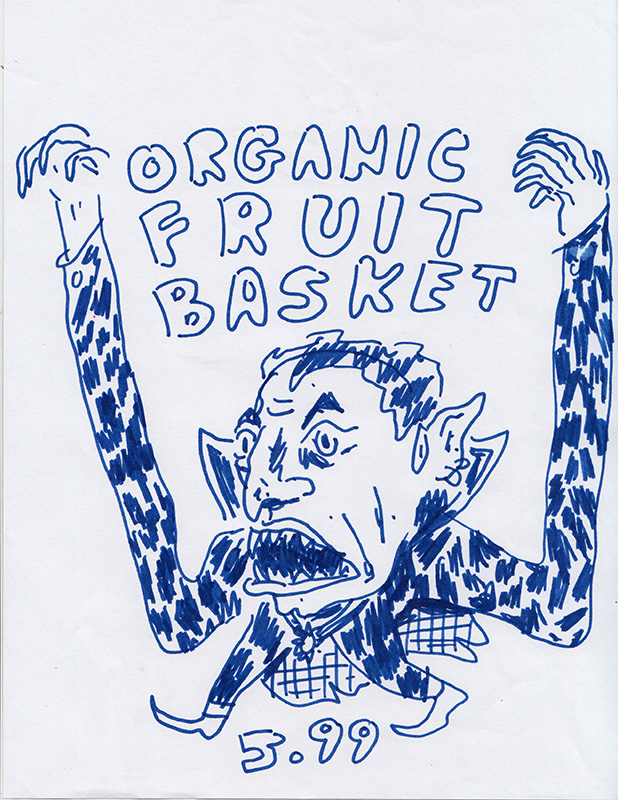 ORGANIC
FRUIT
BASKET
5.99